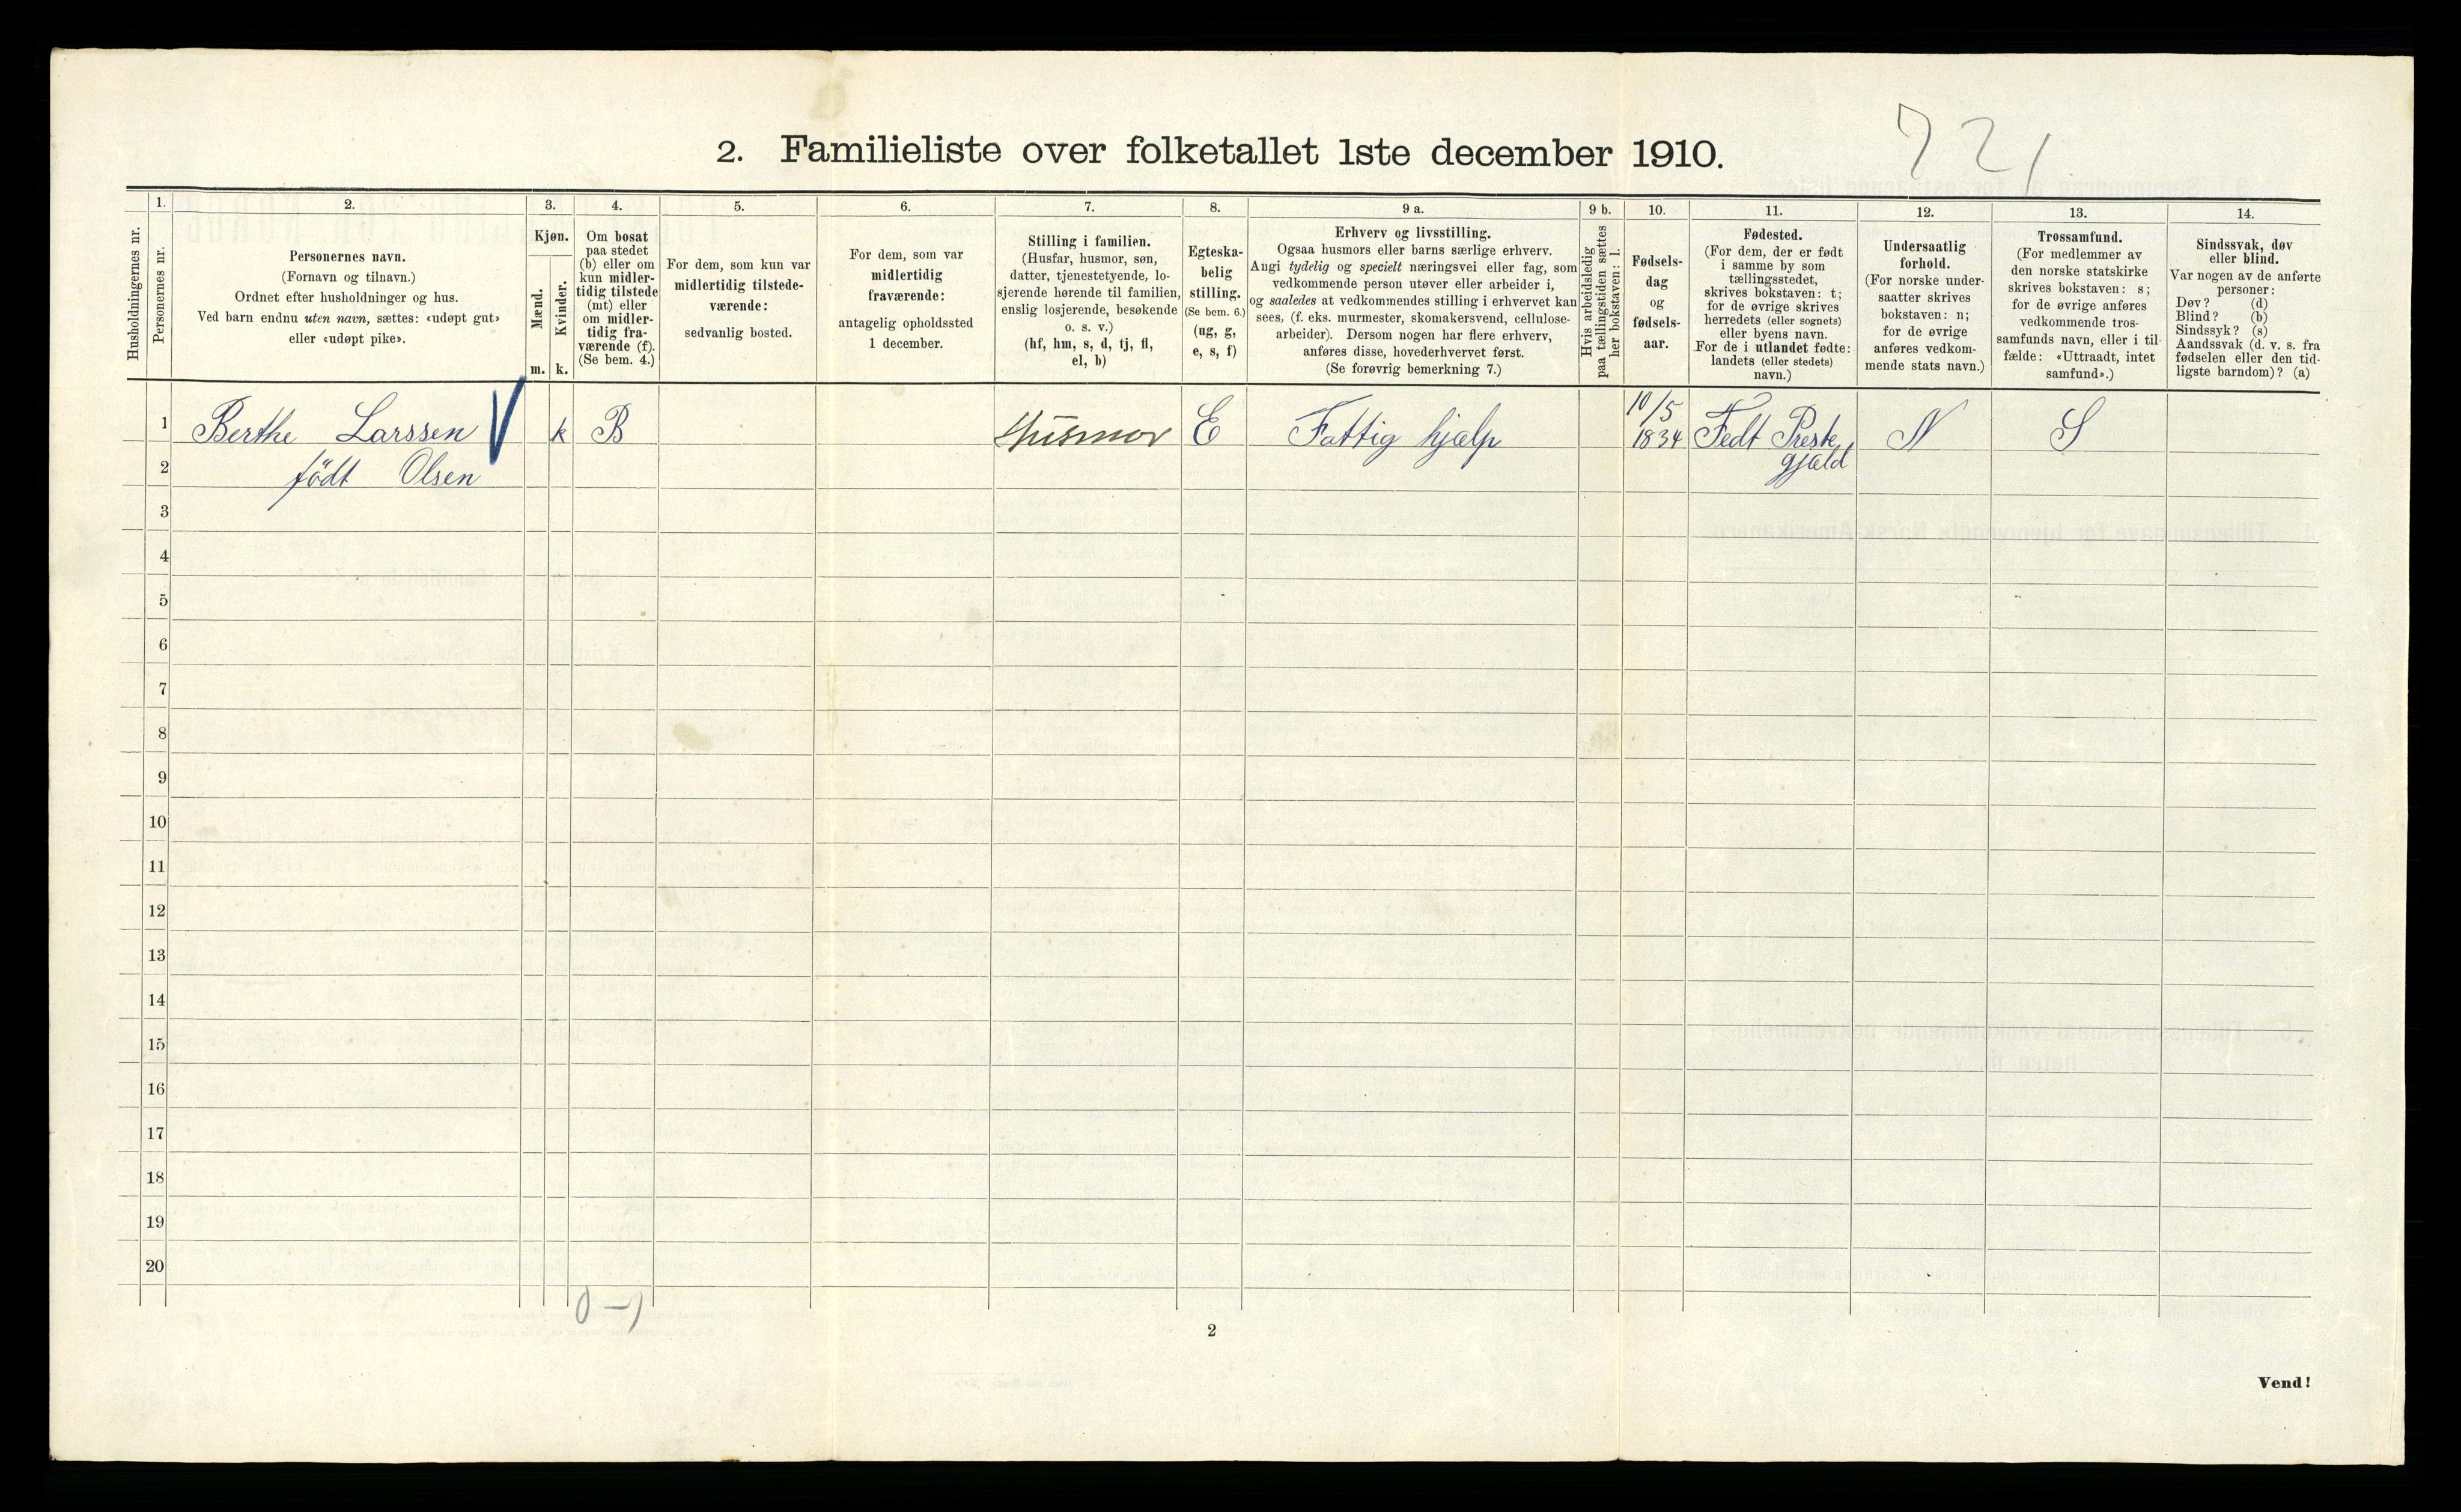 721
2. Familieliste over folketallet 1ste december 1910.
Husholdningernes nr.
1.
Personernes nr.
2.
Personernes navn.
(Fornavn og tilnavn.)
Ordnet efter husholdninger og hus.
Ved barn endnu uten navn, sættes: «udøpt gut»
eller «udøpt pike».
3.
Kjøn.
Mænd.
m.
Kvinder.
k.
4.
Om bosat
paa stedet
(b) eller om
kun midler-
tidig tilstede
(mt) eller
om midler-
tidig fra-
værende (f).
(Se bem. 4.)
5.
For dem, som kun var
midlertidig tilstede-
værende:
sedvanlig bosted.
6.
For dem, som var
midlertidig
fraværende:
antagelig opholdssted
1 december.
7.
Stilling i familien.
(Husfar, husmor, søn,
datter, tjenestetyende, lo-
sjerende hørende til familien,
enslig losjerende, besøkende
o. s. v.)
(hf, hm, s, d, tj, fl,
el, b)
8.
Egteska-
belig
stilling.
(Se bem. 6.)
(ug, g,
e, s, f)
9 a.
Erhverv og livsstilling.
Ogsaa husmors eller barns særlige erhverv.
Angi tydelig og specielt næringsvei eller fag, som
vedkommende person utøver eller arbeider i,
og saaledes at vedkommendes stilling i erhvervet kan
sees, (f. eks. murmester, skomakersvend, cellulose-
arbeider). Dersom nogen har flere erhverv,
anføres disse, hovederhvervet først.
(Se forøvrig bemerkning 7.)
9 b.
Hvis arbeidsledig
paa tællingstiden sættes
her bokstaven: l.
10.
Fødsels-
dag
og
fødsels-
aar.
11.
Fødested.
(For dem, der er født
i samme by som
tællingsstedet,
skrives bokstaven: t;
for de øvrige skrives
herredets (eller sognets)
eller byens navn.
For de i utlandet fødte:
landets (eller stedets)
navn.)
12.
Undersaatlig
forhold.
(For norske under-
saatter skrives
bokstaven: n;
for de øvrige
anføres vedkom-
mende stats navn.)
13.
Trossamfund.
(For medlemmer av
den norske statskirke
skrives bokstaven: s;
for de øvrige anføres
vedkommende tros-
samfunds navn, eller i til-
fælde: «Uttraadt, intet
samfund».)
14.
Sindssvak, døv
eller blind.
Var nogen av de anførte
personer:
Døv? (d)
Blind? (b)
Sindssyk? (s)
Aandssvak (d. v. s. fra
fødselen eller den tid-
ligste barndom)? (a)
1 Berthe Larssen V k B Husmor E Fattig hjælp 10/5 1834 Fedt Preste N S
2 födt Olsen gjæld
3
4
5
6
7
8
9
10
11
12
13
14
15
16
17
18
19
20
0-1
2
Vend!